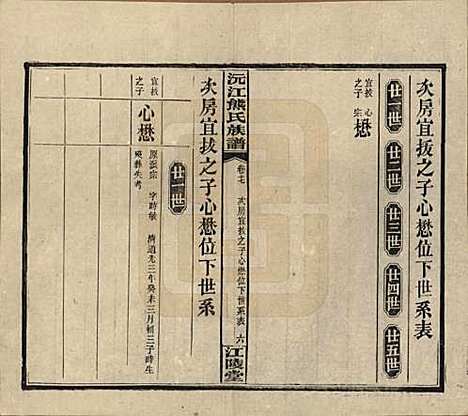 次房宜拔之子心懋位下世系表
廿一世
廿二世
廿三世
廿四世
廿五世
宜拔
之子
心
宗
懋
沅江熊氏族譜
卷十七
次房宜拔之子心懋位下世系表
六
江陵堂
次房宜拔之子心懋位下世系
廿一世
宜拔
之子
心懋
字時敏
清道光三年癸未三月初三子時生
歿葬失考